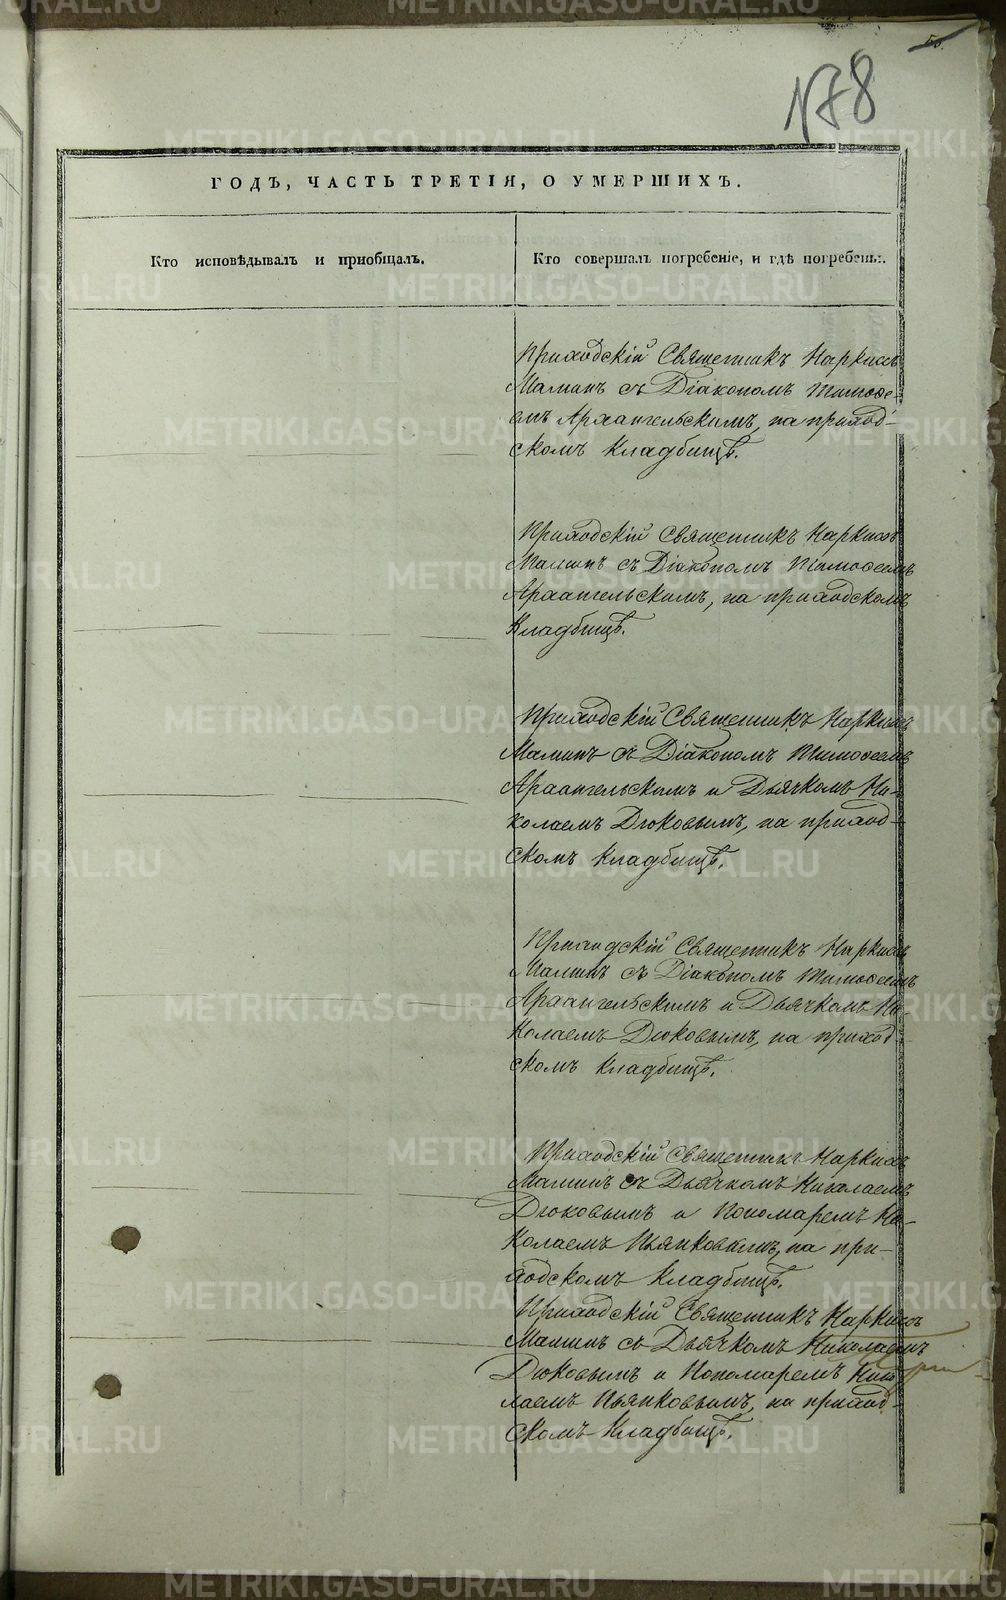 178
ГОДЪ, ЧАСТЬ ТРЕТІЯ, О УМЕРШИХЪ.
Кто исповѣдывалъ и пріобщалъ.
Кто совершалъ погребеніе, и гдѣ погребены.
Приходскій Священникъ Наркиссъ
Маминъ съ Діакономъ Тимоѳе-
емъ Архангельскимъ, на приход-
скомъ кладбищѣ.
Приходскій Священникъ Наркиссъ
Маминъ съ Діакономъ Тимоѳеемъ
Архангельскимъ, на приходскомъ
Кладбищѣ.
Приходскій Священникъ Наркиссъ
Маминъ съ Діакономъ Тимоѳеемъ
Архангельскимъ и Дьячкомъ Ни-
колаемъ Дюковымъ, на приход-
скомъ кладбищѣ.
Приходскій Священникъ Наркиссъ
Маминъ съ Діакономъ Тимоѳеемъ
Архангельскимъ и Дьячкомъ Ни-
колаемъ Дюковымъ, на приход-
скомъ кладбищѣ.
Приходскій Священникъ Наркиссъ
Маминъ съ Дьячкомъ Николаемъ
Дюковымъ и Пономаремъ Ни-
колаемъ Пьянковымъ, на при-
ходскомъ кладбищѣ.
Приходскій Священникъ Наркиссъ
Маминъ съ Дьячкомъ Николаемъ
Дюковымъ и Пономаремъ Нико-
лаемъ Пьянковымъ, на приход-
скомъ Кладбищѣ.
METRIKI.GASO-URAL.RU